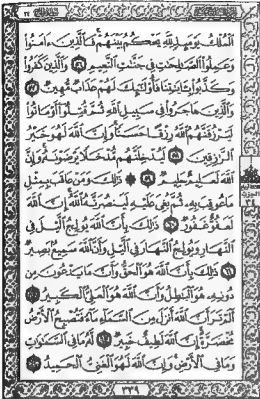 الْمُلْكُ يَوْمَئِذٍ لِلَّهِ يَحْكُمُ بَيْنَهُمْ فَالَّذِينَ ءَامَنُوا
وَعَمِلُوا الصَّالِحَاتِ فِي جَنَّاتِ النَّعِيمِ ٥٦ وَالَّذِينَ كَفَرُوا
وَكَذَّبُوا بِـَٔايَاتِنَا فَأُولَئِكَ لَهُمْ عَذَابٌ مُهِينٌ ٥٧
وَالَّذِينَ هَاجَرُوا فِي سَبِيلِ اللَّهِ ثُمَّ قُتِلُوا أَوْ مَاتُوا
لَيَرْزُقَنَّهُمُ اللَّهُ رِزْقًا حَسَنًا وَإِنَّ اللَّهَ لَهُوَ خَيْرُ
الرَّازِقِينَ ٥٨ لَيُدْخِلَنَّهُمْ مُدْخَلًا يَرْضَوْنَهُ وَإِنَّ
اللَّهَ لَعَلِيمٌ حَلِيمٌ ٥٩ ۞ ذَلِكَ وَمَنْ عَاقَبَ بِمِثْلِ
مَا عُوقِبَ بِهِ ثُمَّ بُغِيَ عَلَيْهِ لَيَنْصُرَنَّهُ اللَّهُ إِنَّ اللَّهَ
لَعَفُوٌّ غَفُورٌ ٦٠ ذَلِكَ بِأَنَّ اللَّهَ يُولِجُ اللَّيْلَ فِي
النَّهَارِ وَيُولِجُ النَّهَارَ فِي اللَّيْلِ وَأَنَّ اللَّهَ سَمِيعٌ بَصِيرٌ
٦١ ذَلِكَ بِأَنَّ اللَّهَ هُوَ الْحَقُّ وَأَنَّ مَا يَدْعُونَ مِنْ
دُونِهِ هُوَ الْبَاطِلُ وَأَنَّ اللَّهَ هُوَ الْعَلِيُّ الْكَبِيرُ ٦٢
أَلَمْ تَرَ أَنَّ اللَّهَ أَنْزَلَ مِنَ السَّمَاءِ مَاءً فَتُصْبِحُ الْأَرْضُ
مُخْضَرَّةً إِنَّ اللَّهَ لَطِيفٌ خَبِيرٌ ٦٣ لَهُ مَا فِي السَّمَاوَاتِ
وَمَا فِي الْأَرْضِ وَإِنَّ اللَّهَ لَهُوَ الْغَنِيُّ الْحَمِيدُ ٦٤
٣٣٩